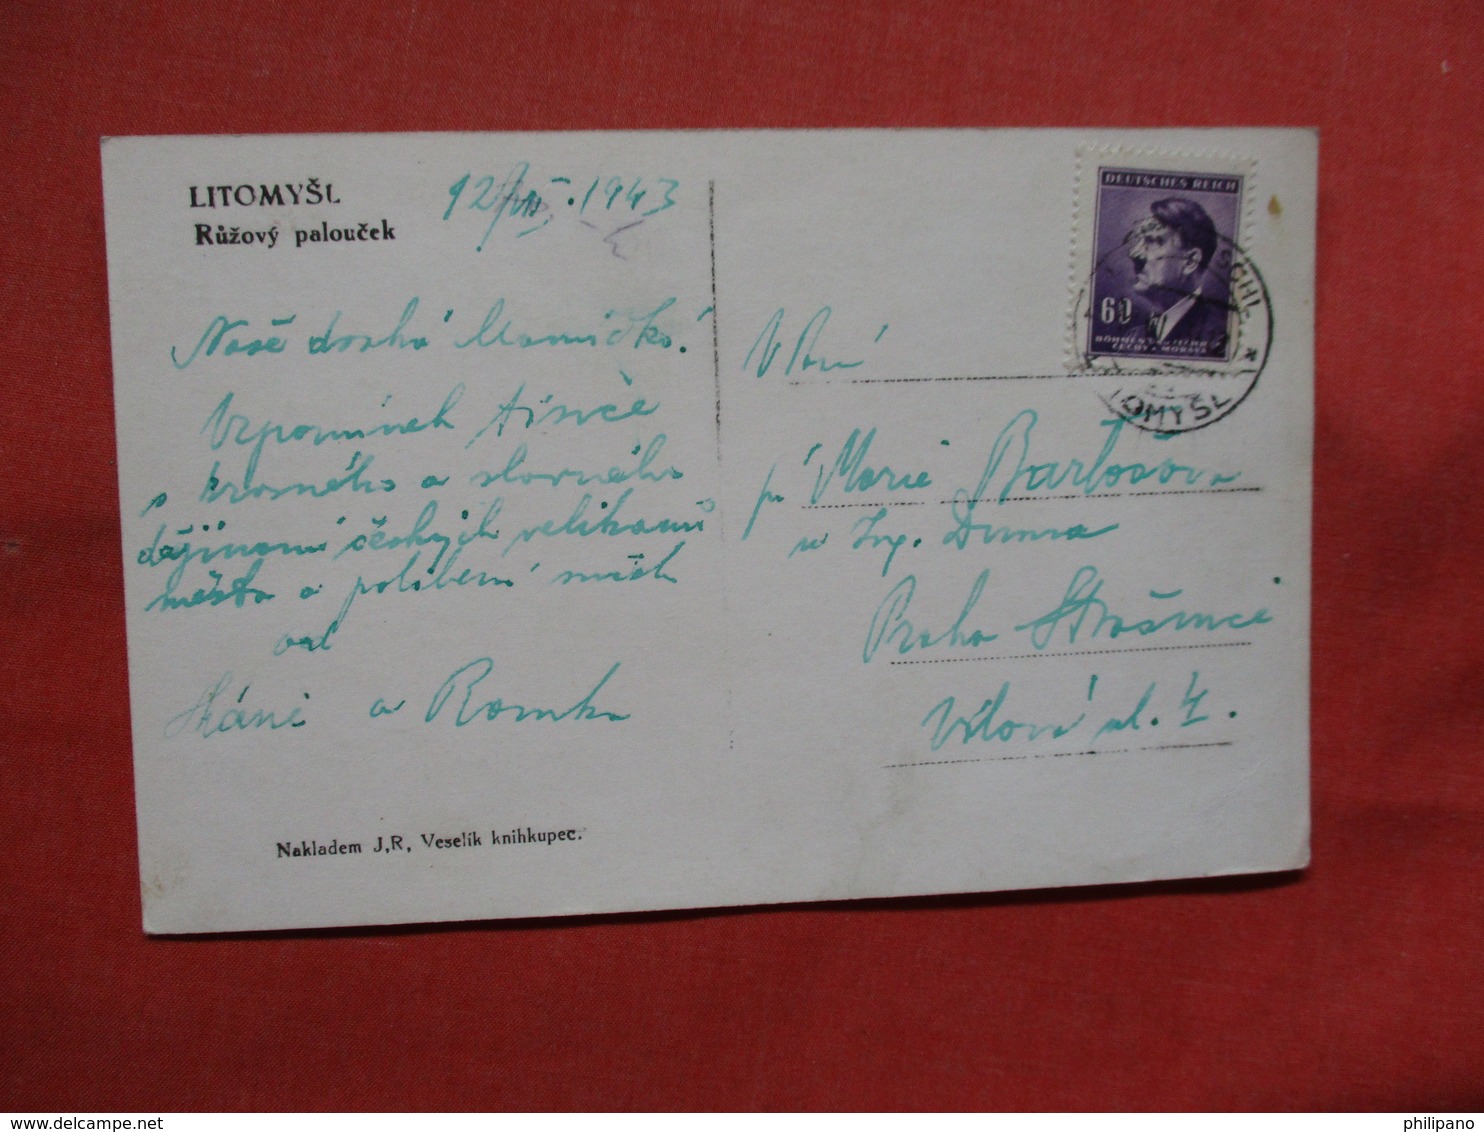 LITOMYŠL
Růžový palouček
12/VII. 1943
Naše drahá Mamičko!
Vzpomínek tisíce
s krásného a slavného
dějinami českých velikánů
města a políbení
od
a Romka
Nakladem J,R, Veselík knihkupec.
DEUTSCHES REICH
60
BÖHMEN UND MÄHREN
ČECHY A MORAVA
OMYŠL
pí Marie Bartošová
u Ing. Duma
Praha Strašnice
ul. 4.
philipano